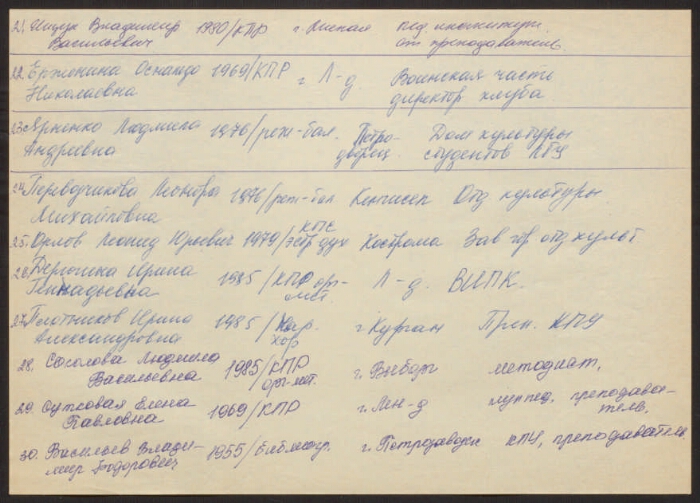 21. Владимир 1980/КПР г. пед. институт.
Васильевич ст. преподаватель.
22. Николаевна 1969/КПР г. Л-д Воинская часть
директор клуба
23. Людмила 1976/реж-бал. Петро- Дом культуры
Андреевна дворец. студентов ЛГУ
24. Переводчикова Леонора 1976/реж-бал Кингисеп Отд культуры
Михайловна
25. Орлов Леонид Юрьевич 1979/КПС эстр-дух Кострома Зав гор отд культ
26. Ирина 1985/КПР орг- Л-д. ВИПК.
Геннадьевна мет.
27. Плотников Ирина 1985/Нар. г. Курган Преп. КПУ
Александровна хор
28. Соколова Людмила 1985/КПР г. Выборг методист,
Васильевна орг-мет.
29. Елена 1969/КПР г. Лен-д преподава-
Павловна тель,
30. Васильев Влади- 1955/библиогр. г. Петрозаводск КПУ, преподаватель
мир Федорович